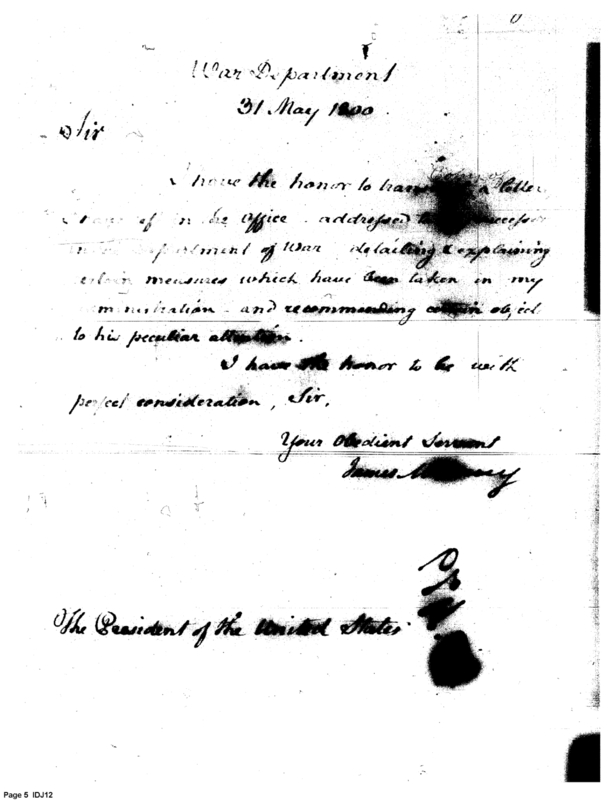 War Department
31 May 1800.
Sir
I have the honor to a letter
in the office addressed
of War detailing & explaining
measures which have been taken in my
and recommending certain object
to his peculiar attention.
I have the honor to be with
perfect consideration, Sir,
Your Obedient Servant
James
The President of the United States
Page 5 IDJ12